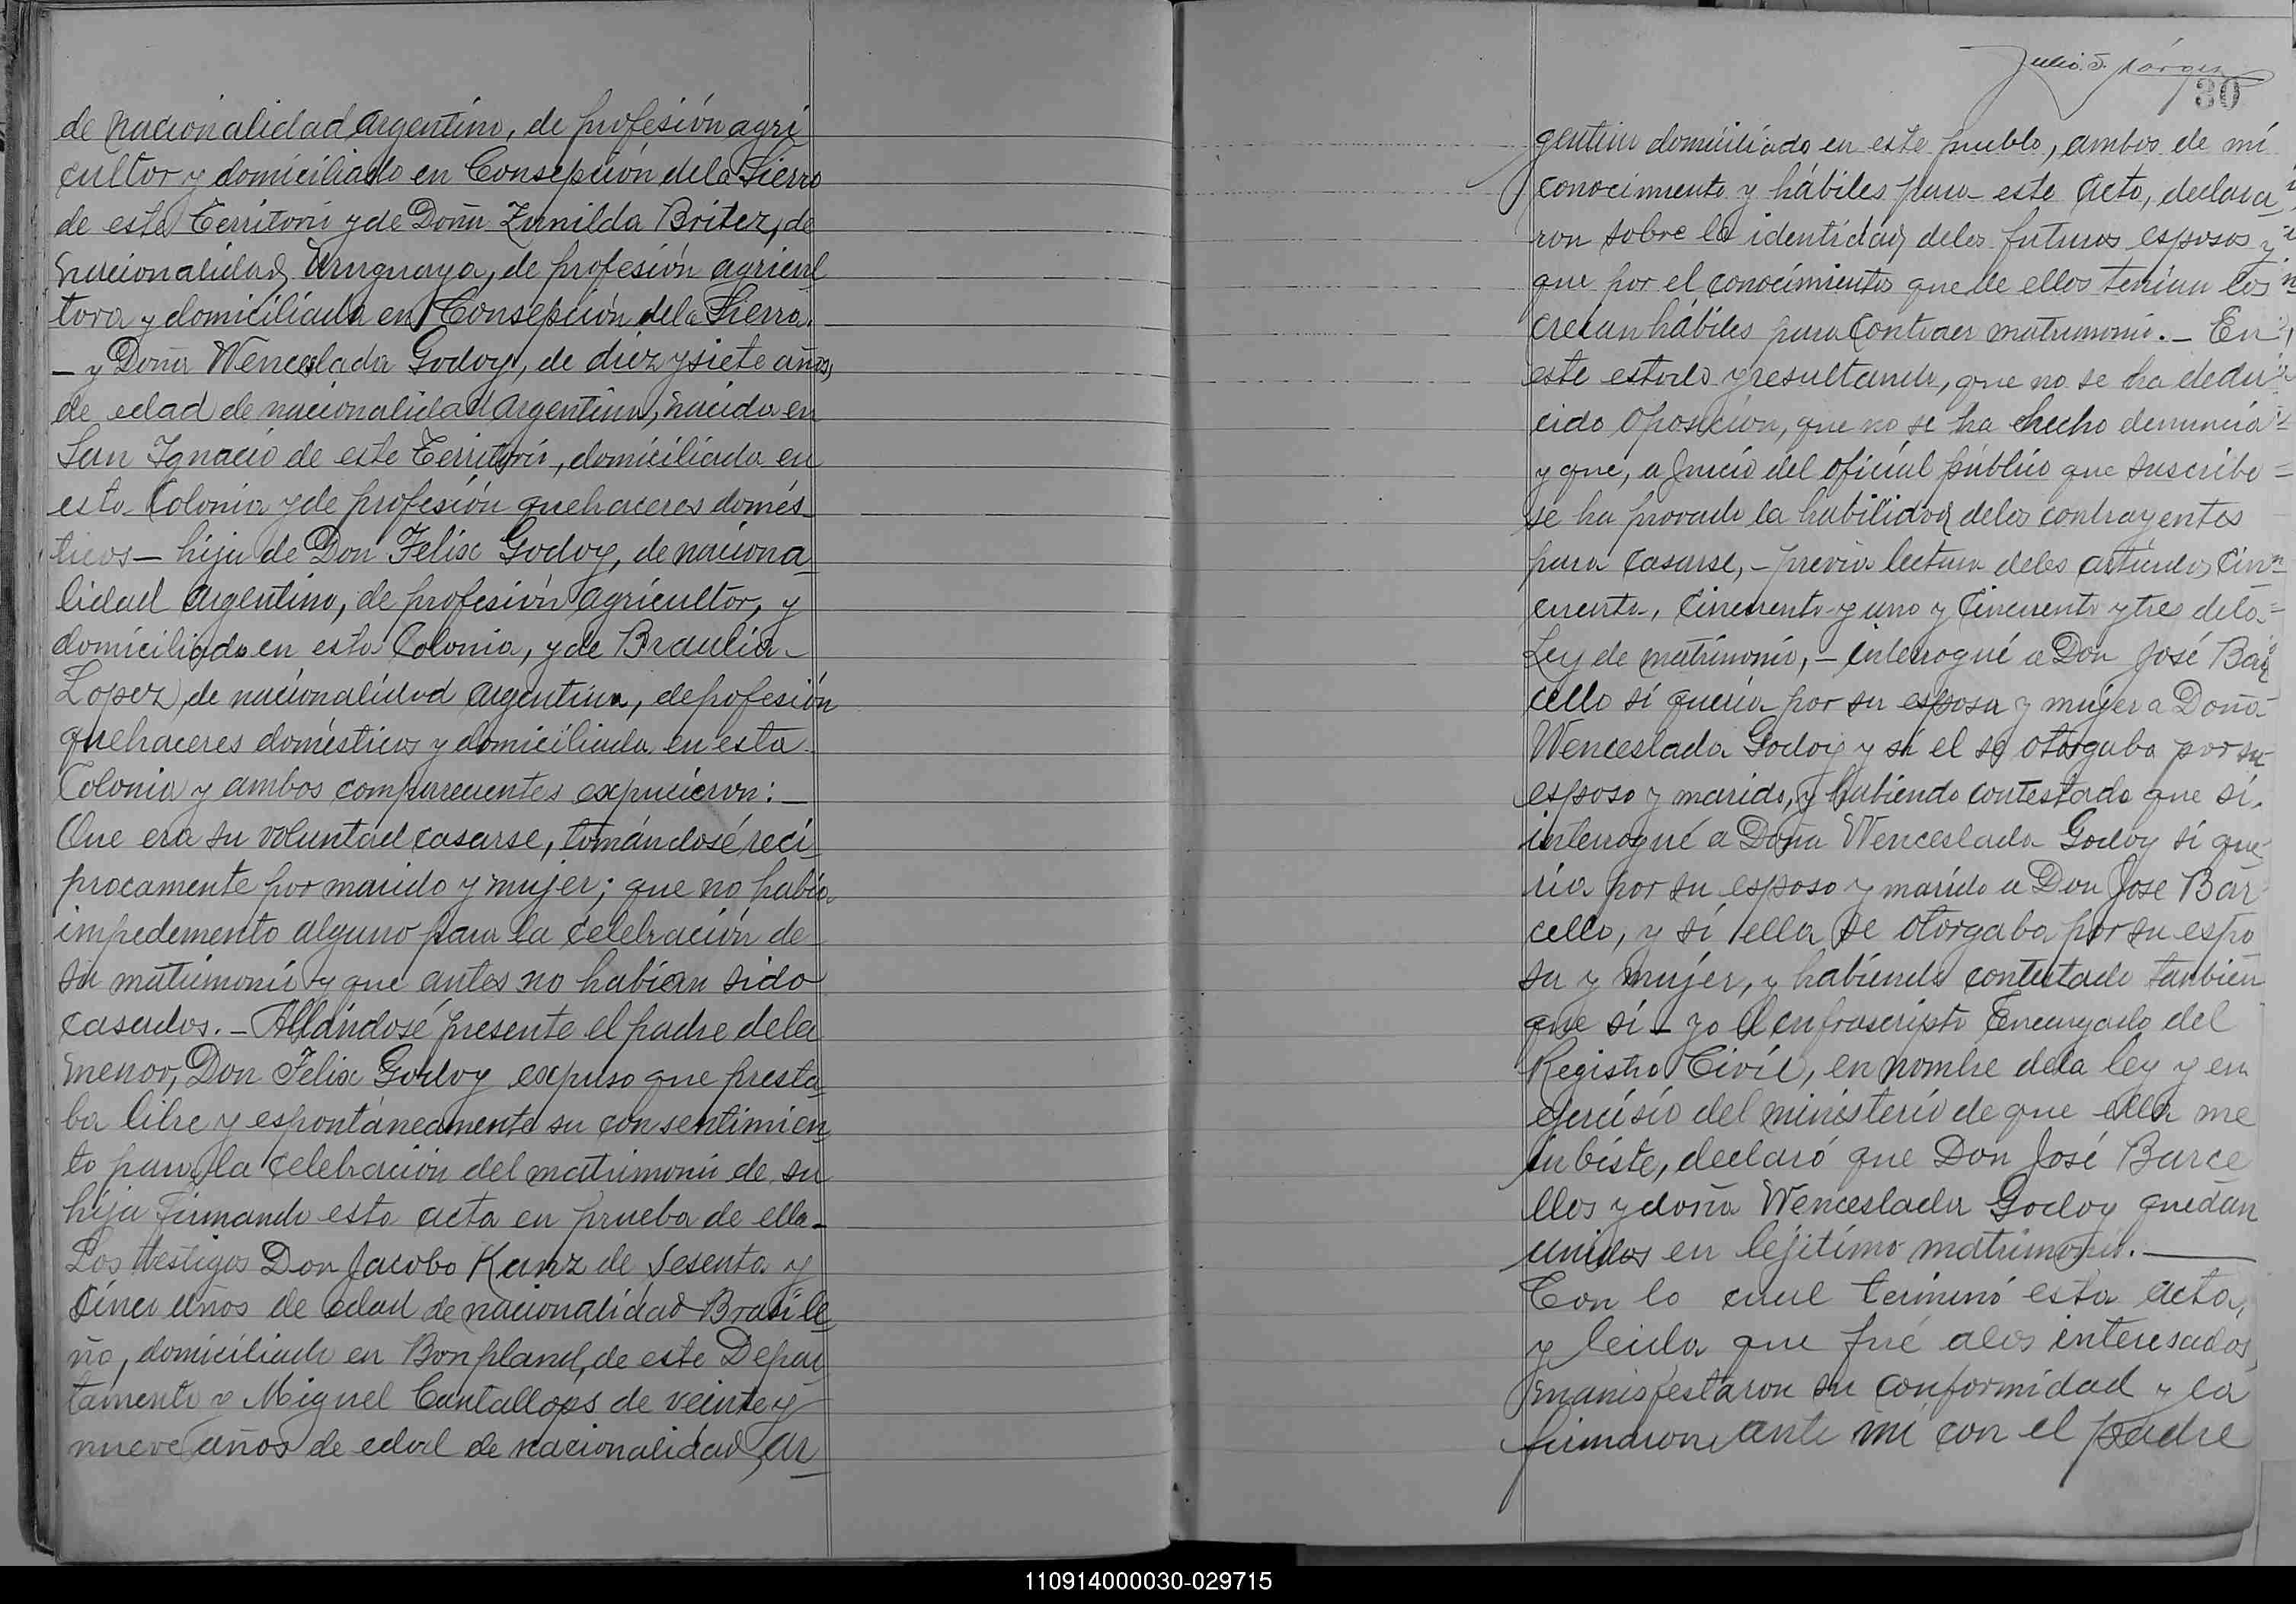 de nacionalidad argentino, de profesión agri
cultor y domiciliado en Consepción de la Sierra
de este Territorio y de Doña Zunilda Britez, de
nacionalidad Uruguaya, de profesión agricul
tora y domiciliada en Consepción de la Sierra.
— y Doña Wenceslada Godoy, de diez y siete años,
de edad de nacionalidad argentina, nacida en
San Ignacio de este Territorio, domiciliada en
esta Colonia y de profesión quehaceres domés-
ticos — hija de Don Felix Godoy, de naciona-
lidad argentino, de profesión agricultor, y
domiciliado en esta Colonia, y de Braulia
Lopez, de nacionalidad argentina, de profesión
quehaceres domésticos y domiciliada en esta
Colonia y ambos comparecientes expucieron: —
Que era su voluntad casarse, tomándosé reci-
procamente por marido y mujer; que no había
impedemento alguno para la celebración de
su matrimonio y que antes no habían sido
casados. — Allándosé presente el padre de la
menor, Don Felix Godoy expuso que presta-
ba libre y espontáneamente su consentimien
to para la celebración del matrimonio de su
hija firmando esta acta en prueba de ella —
Los testigos Don Jacobo Kunz de sesenta y
cinco años de edad de nacionalidad Brasile
ño, domiciliado en Bonpland, de este Depar
tamento y Miguel Cantallops de veinte y
nueve años de edad de nacionalidad, ar-
30
gentino domiciliado en este pueblo, ambos de mi
conocimiento y hábiles para este acto, declara
ron sobre la identidad de los futuros esposos y
que por el conocimientos que de ellos tenian los
creian hábiles para contraer matrimonio. — En
este estado y resultando, que no se ha dedu
cido oposición, que no se ha hecho denuncia
y que, a juicio del oficial público que suscribe
se ha provado la habilidad de los contrayentes
para casarse, — previa lectura de los artículos cin
cuenta, cincuenta y uno y cincuenta y tres de la
Ley de matrimonio, — interrogué a Don José Bar
cello si queria por su esposa y mujer a Doña
Wenceslada Godoy y si el se otorgaba por su
esposo y marido, y habiendo contestado que si.
interrogué a Doña Wenceslada Godoy si que
ria por su esposo y marido a Don Jose Bar
cello, y si ella se otorgaba por su espo
sa y mujer, y habiendo contestado tanbien
que sí — yo el enfrascripto Encargado del
Registro Civíl, en nombre de la ley y en
ejercisio del ministerio de que ella me
inbiste, declaró que Don José Barce
llos y doña Wenceslada Godoy quedan
unidos en lejítimo matrimonio. —
Con lo cual terminó esta acta,
y leida que fué a los interesados,
manisfestaron su conformidad y la
firmaron ante mi con el padre
110914000030-029715